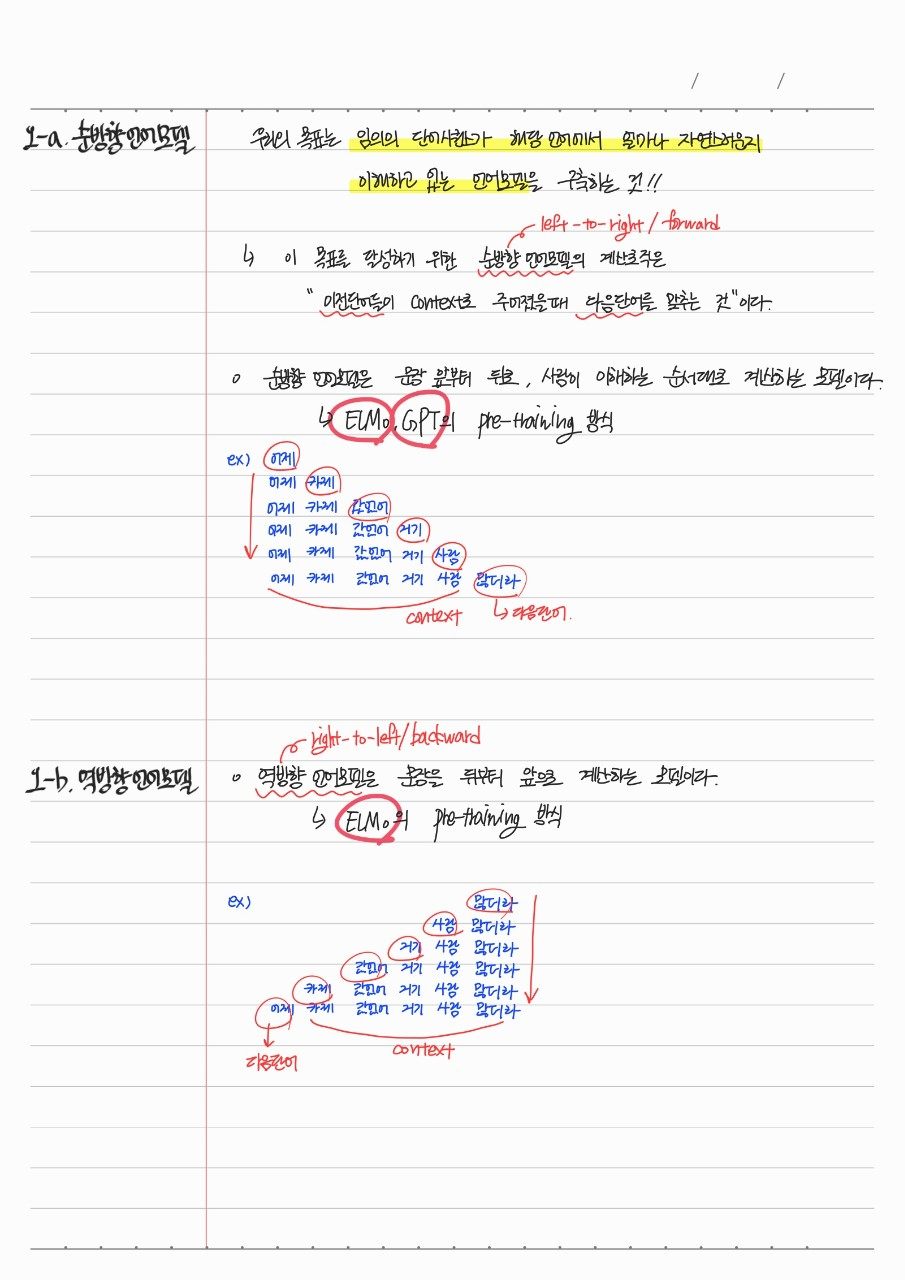 / /
1-a. 순방향 언어모델
우리의 목표는 임의의 단어시퀀스가 해당 언어에서 얼마나 자연스러운지
이해하고 있는 언어모델을 구축하는 것!!
left-to-right / forward
↳ 이 목표를 달성하기 위한 순방향 언어모델의 계산로직은
"이전단어들이 context로 주어졌을때 다음단어를 맞추는 것"이다.
o 순방향 언어모델은 문장 앞부터 뒤로, 사람이 이해하는 순서대로 계산하는 모델이다.
↳ ELMo, GPT의 pre-training 방식
ex) 어제
어제 카페
어제 카페 갔었어
어제 카페 갔었어 거기
어제 카페 갔었어 거기 사람
어제 카페 갔었어 거기 사람 많더라
context ↳ 다음단어.
right-to-left/backward
1-b. 역방향 언어모델
o 역방향 언어모델은 문장을 뒤부터 앞으로 계산하는 모델이다.
↳ ELMo의 pre-training 방식
ex) 많더라
사람 많더라
거기 사람 많더라
갔었어 거기 사람 많더라
카페 갔었어 거기 사람 많더라
어제 카페 갔었어 거기 사람 많더라
context
다음단어